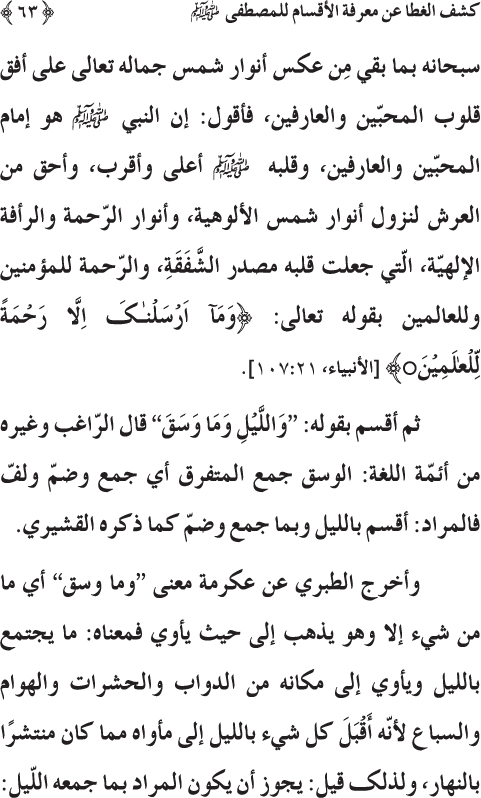 كشف الغطا عن معرفة الأقسام للمصطفى ﷺ ﴿٦٣﴾
سبحانه بما بقي مِن عكس أنوار شمس جماله تعالى على أفق
قلوب المحبّين والعارفين، فأقول: إن النبي ﷺ هو إمام
المحبّين والعارفين، وقلبه ﷺ أعلى وأقرب، وأحق من
العرش لنزول أنوار شمس الألوهية، وأنوار الرّحمة والرأفة
الإلهيّة، الّتي جعلت قلبه مصدر الشَّفَقَةِ، والرّحمة للمؤمنين
وللعالمين بقوله تعالى: ﴿وَمَآ اَرْسَلْنٰكَ اِلَّا رَحْمَةً
لِّلْعٰلَمِيْنَ○﴾ [الأنبياء، ١٠٧:٢١].
ثم أقسم بقوله: ”وَاللَّيْلِ وَمَا وَسَقَ“ قال الرّاغب وغيره
من أئمّة اللغة: الوسق جمع المتفرق أي جمع وضمّ ولفّ
فالمراد: أقسم بالليل وبما جمع وضمّ كما ذكره القشيري.
وأخرج الطبري عن عكرمة معنى ”وما وسق“ أي ما
من شيء إلا وهو يذهب إلى حيث يأوي فمعناه: ما يجتمع
بالليل ويأوي إلى مكانه من الدواب والحشرات والهوام
والسباع لأنّه أَقْبَلَ كل شيء بالليل إلى مأواه مما كان منتشرًا
بالنهار، ولذلك قيل: يجوز أن يكون المراد بما جمعه اللّيل: